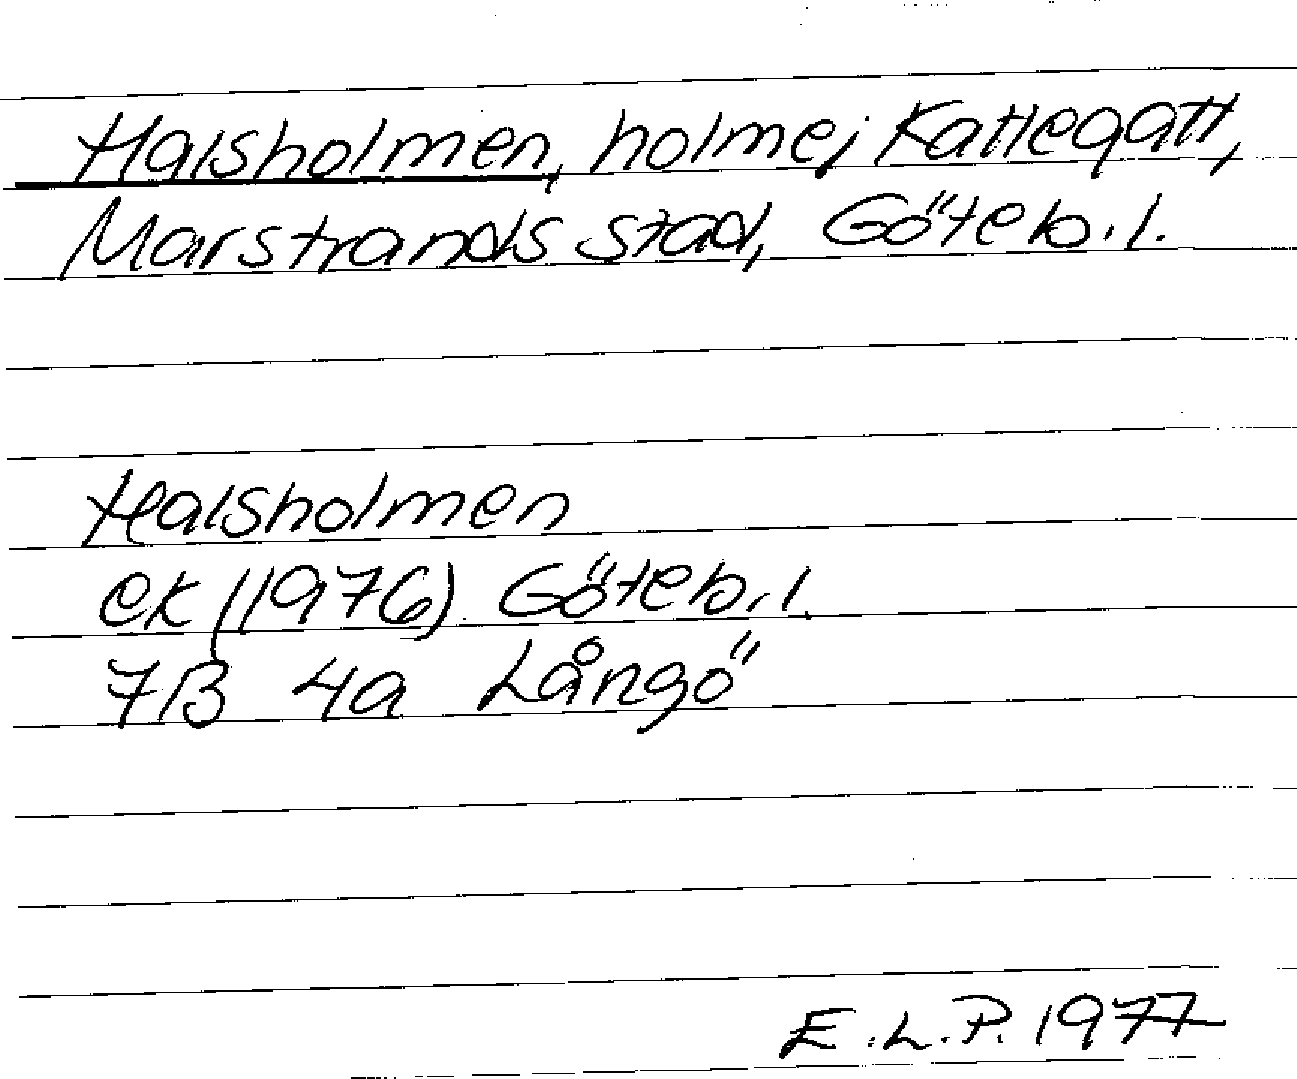 Halsholmen, holme i Kattegatt,
Marstrands stad, Göteb.l.
Halsholmen
ek (1976) Göteb.l.
7B 4a Långö
E.L.P. 1977